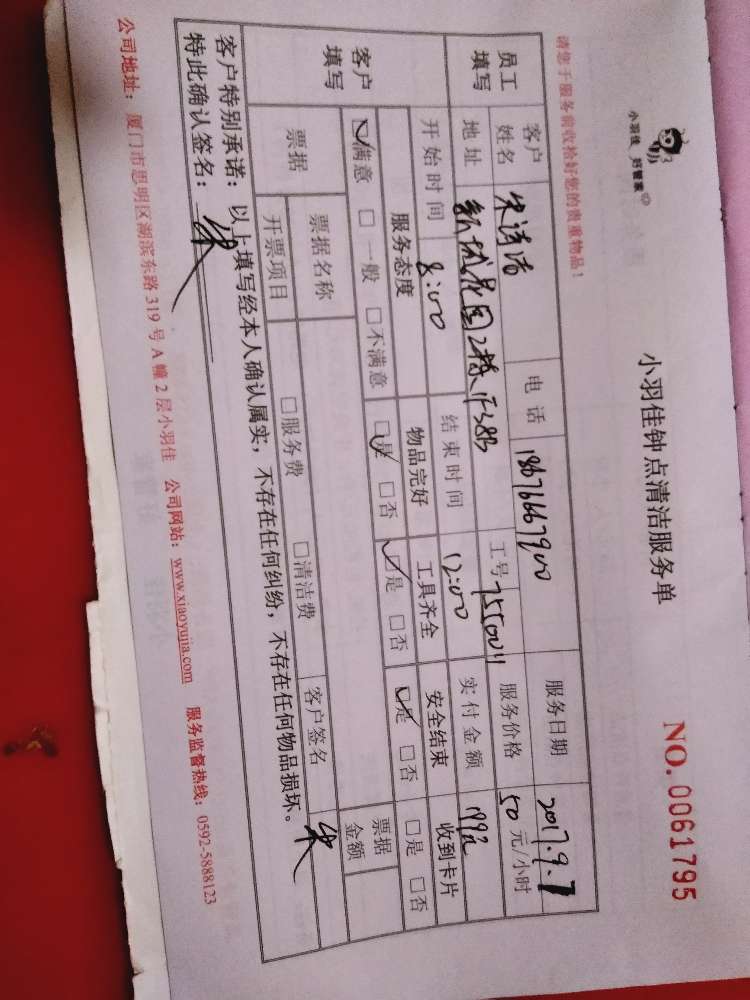 小羽佳 好管家
小羽佳钟点清洁服务单
NO.0061795
请您于服务前收拾好您的贵重物品！
员工填写 客户姓名 电话 18676667900 服务日期 2017.9.7
地址 新城花园2栋 工号 服务价格 50 元/小时
开始时间 8:00 结束时间 12:00 实付金额
客户填写 服务态度 物品完好 工具齐全 安全结束 收到卡片
☑满意 □一般 □不满意 ☑是 □否 ☑是 □否 ☑是 □否 □是 □否
票据 票据名称 客户签名 朱 票据金额
开票项目 □服务费 □清洁费
客户特别承诺：以上填写经本人确认属实，不存在任何纠纷，不存在任何物品损坏。
特此确认签名： 朱
公司地址：厦门市思明区湖滨东路 319 号 A 幢 2 层小羽佳 公司网站：www.xiaoyujia.com 服务监督热线：0592-5888123